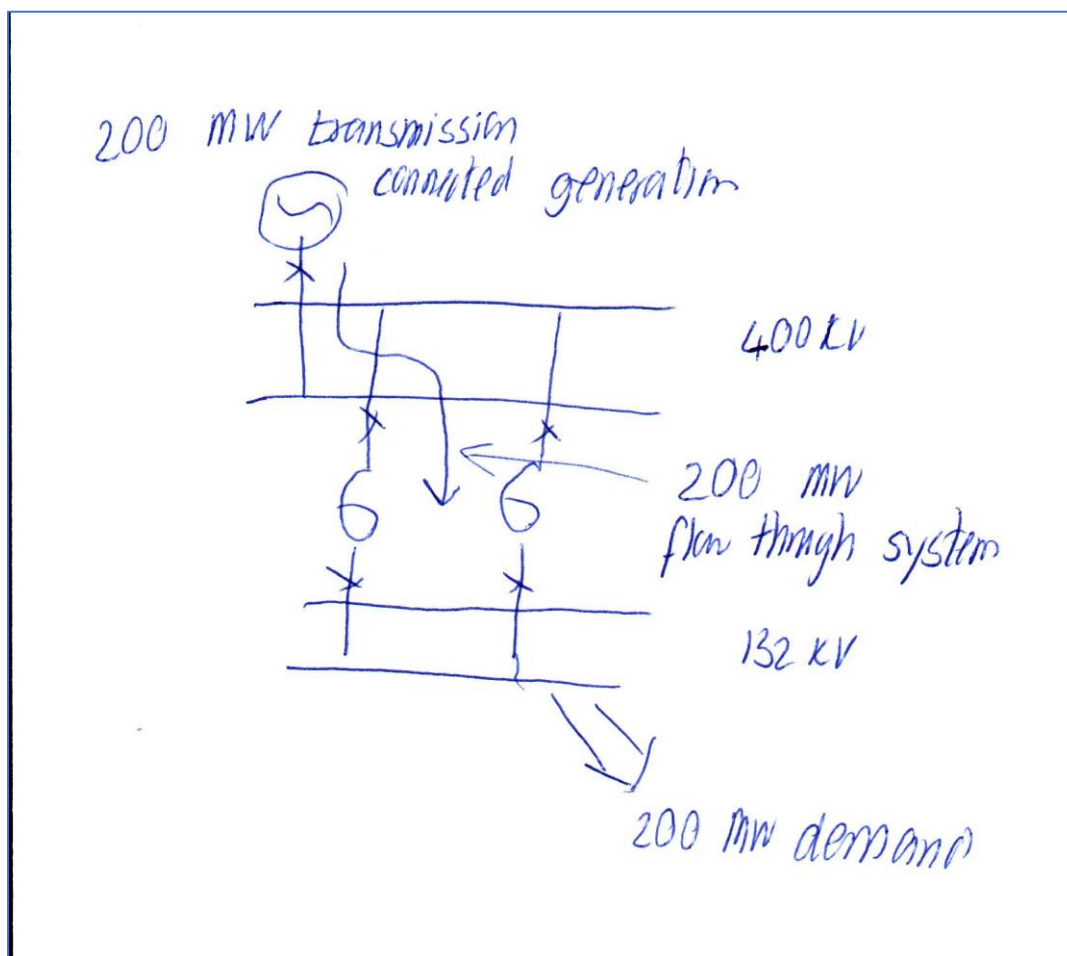 200 MW transmission
connected generation
400 kV
200 MW
flow through system
132 kV
200 MW demand